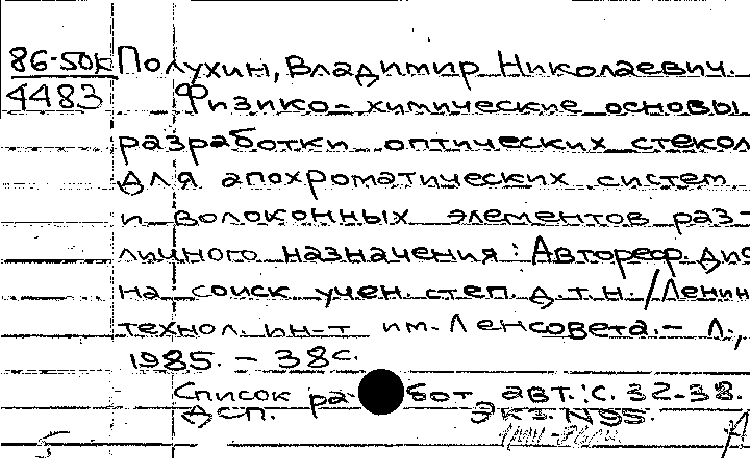 86-50к Полухин, Владимир Николаевич.
4483 Физико-химические основы
разработки оптических стекол
для апохроматических систем
и волоконных элементов раз-
личного назначения: Автореф. дис
на соиск учен. степ. д.т.н. /Ленин
технол. ин-т им. Ленсовета.- Л.,
1985. - 38с.
Список работ авт.: с. 32-38.
ДСП. Экз. N95.